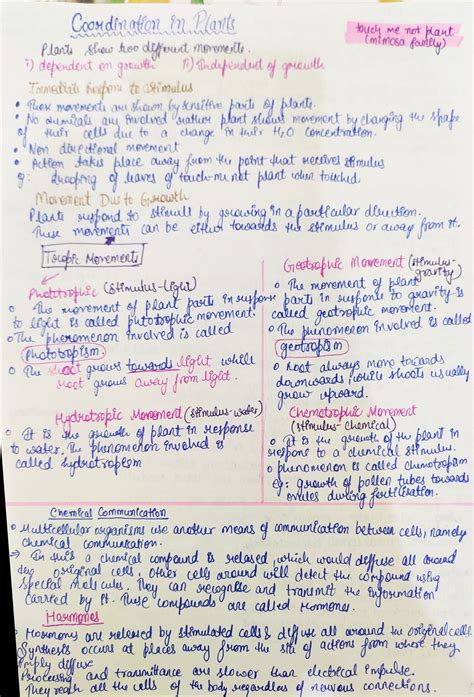 Coordination in Plants
touch me not plant
(mimosa family)
Plants show two different movements.
i) dependent on growth ii) Independent of growth
Immediate Response to Stimulus
• These movements are shown by sensitive parts of plants.
• No chemicals are involved rather plant shows movement by changing the shape
of their cells due to a change in their H2O concentration.
• Non directional movement
• Action takes place away from the point that receives stimulus
eg: drooping of leaves of touch-me not plant when touched.
Movement Due to Growth
Plants respond to stimuli by growing in a particular direction.
These movements can be either towards the stimulus or away from it.
Tropic Movements
Phototrophic (stimulus-light)
• The movement of plant parts in response
to light is called phototrophic movement.
• The phenomenon involved is called
phototropism
• The shoot grows towards light while
root grows away from light.
Geotrophic Movement (stimulus-
gravity)
• The movement of plant
parts in response to gravity is
called geotrophic movement.
• The phenomenon involved is called
geotropism
• Root always move towards
downwards while shoots usually
grow upward.
Hydrotropic Movement (stimulus-water)
• It is the growth of plant in response
to water. The phenomenon involved is
called hydrotropism
Chemotrophic Movement
(stimulus-chemical)
• It is the growth of the plant in
respons to a chemical stimulus.
• phenomenon is called chemotropism
eg: growth of pollen tubes towards
ovules during fertilisation.
Chemical Communication
• Multicellular organisms use another means of communication between cells, namely
chemical communication.
→ In this a chemical compound is relased, which would diffuse all around
the original cells. Other cells around will detect the compound using
special molecules. They can recognise and transmit the information
carried by it. These compounds are called Hormones.
Hormones
• Hormones are released by stimulated cells & diffuse all around the original cells.
Synthesis occurs at places away from the site of action from where they
simply diffuse
Processing and transmittance are slower than electrical impulse.
They reach all the cells of the body regardless of nervous connections.